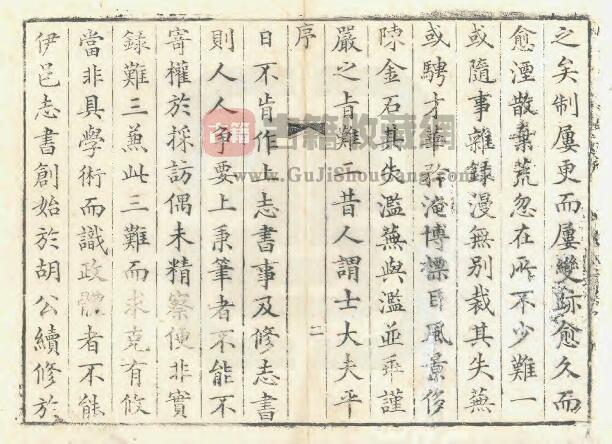 之矣制屢更而屢變跡愈久而
愈湮散棄荒忽在所不少難一
或隨事雜録漫無別裁其失蕪
或騁才華矜淹博標目風景侈
陳金石其失濫蕪與濫並乖謹
嚴之旨難二昔人謂士大夫平
序
二
日不肯作上志書事及修志書
則人人爭要上秉筆者不能不
寄權於採訪偶未精察便非實
録難三兼此三難而求克有攸
當非具學術而識政體者不能
伊邑志書創始於胡公續修於
古籍收藏網
www.GuJiShouCang.com